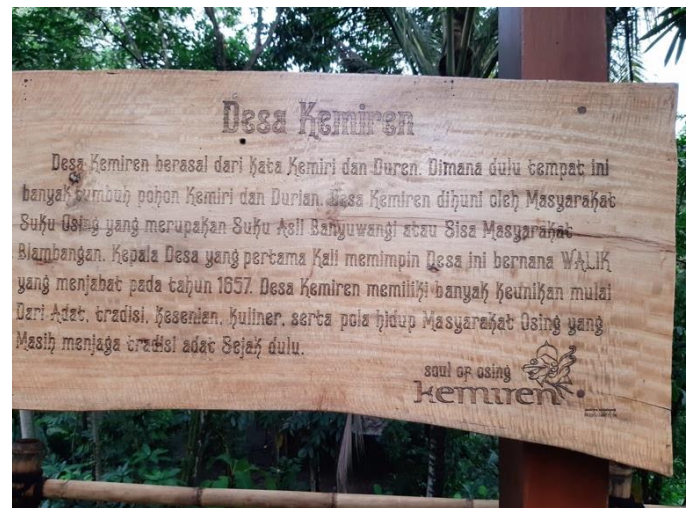 Desa Kemiren
Desa Kemiren berasal dari Kata Kemiri dan Duren. Dimana dulu tempat ini
banyak tumbuh pohon Kemiri dan Durian. Desa Kemiren dihuni oleh Masyarakat
Suku Osing yang merupakan Suku Asli Banyuwangi atau Sisa Masyarakat
Blambangan. Kepala Desa yang pertama Kali memimpin Desa ini bernana WALIK
yang menjabat pada tahun 1657. Desa Kemiren memiliki banyak Keunikan mulai
Dari Adat, tradisi, Kesenian, Kuliner, serta pola hidup Masyarakat Osing yang
Masih menjaga tradisi adat Sejak dulu.
soul of osing
kemiren